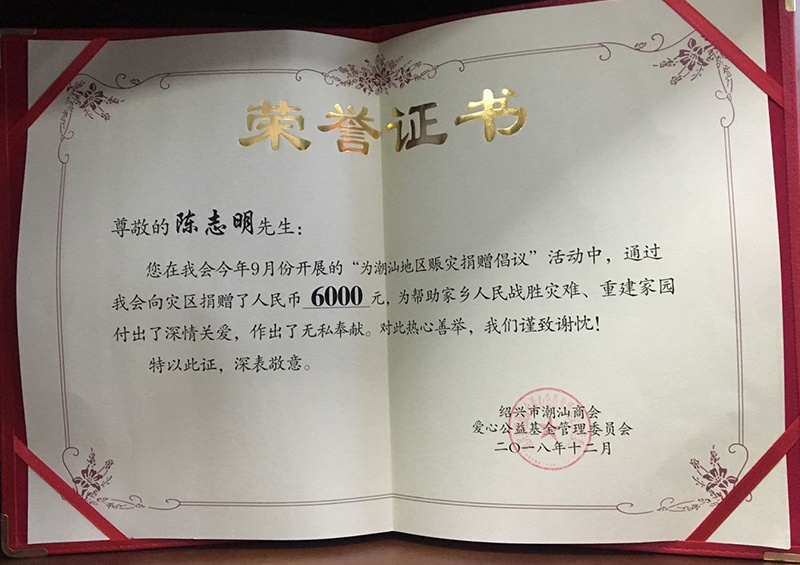 荣誉证书
尊敬的陈志明先生：
您在我会今年9月份开展的“为潮汕地区赈灾捐赠倡议”活动中，通过
我会向灾区捐赠了人民币 6000 元，为帮助家乡人民战胜灾难、重建家园
付出了深情关爱，作出了无私奉献。对此热心善举，我们谨致谢忱！
特以此证，深表敬意。
绍兴市潮汕商会
爱心公益基金管理委员会
二〇一八年十二月